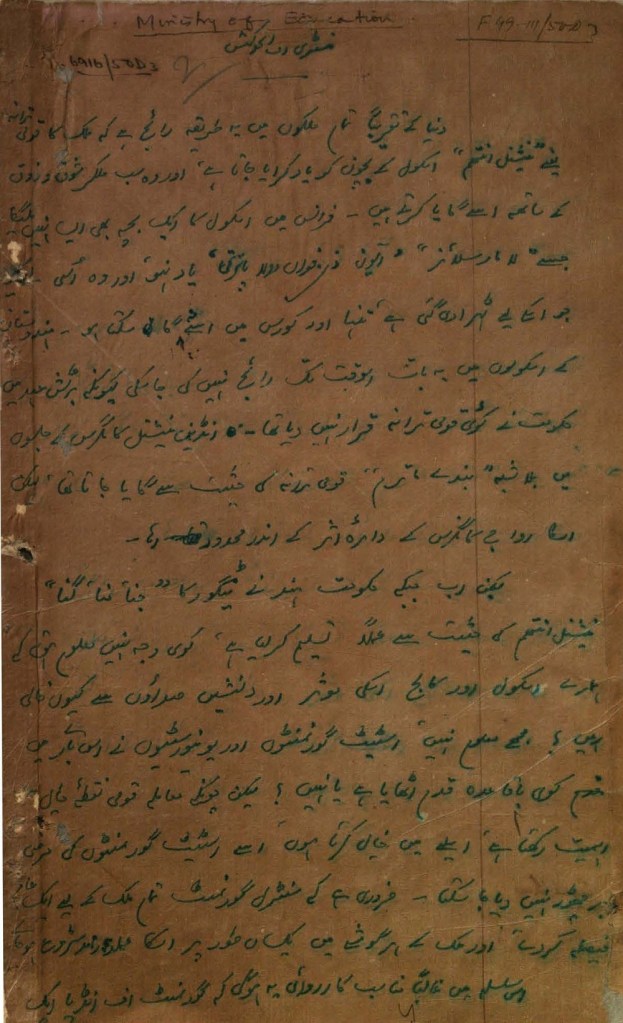 Ministry of Education.
F 49-III/50D3
منسٹری اف ایجوکیشن
6916/50D3
دنیا کے تقریباً تمام ملکوں میں یہ طریقہ رائج ہے کہ ملک کا قومی ترانہ
یعنے "نیشنل انتھم" اسکول کے بچوں کو یاد کرایا جاتا ہے، اور وہ سب ملکر شوق و ذوق
کے ساتھ اسے گایا کرتے ہیں - فرانس میں اسکول کا ایک بچہ بھی ایسا نہیں ملیگا
جسے "لا مارسلائز" یاد نہو، اور وہ اُسی
جو اسکے لیے ٹھرا دی گئی ہے، تنہا اور کورس میں اسے گا نہ سکتا ہو - ہندوستان
کے اسکولوں میں یہ بات اسوقت تک رائج نہیں کی جاسکی کیونکہ برٹش عہد میں
حکومت نے کوئی قومی ترانہ قرار نہیں دیا تھا - انڈین نیشنل کانگرس کے جلسوں
میں بلا شبہ "بندے ماترم" قومی ترانہ کی حیثیت سے گایا جاتا تھا، لیکن
اسکا رواج کانگرس کے دائرۂ اثر کے اندر محدود رہا -
لیکن اب جبکہ حکومت ہند نے ٹیگور کا "جنا گنا منا"
نیشنل انتھم کی حیثیت سے عملاً تسلیم کر لیا ہے، کوئی وجہ نہیں معلوم ہوتی کہ
ہمارے اسکول اور کالج اسکی موثر اور دلنشیں صداؤں سے کیوں خالی
رہیں؟ مجھے معلوم نہیں، اسٹیٹ گورنمنٹوں اور یونیورسٹیوں نے اس بارے میں
کوئی باقاعدہ قدم اٹھایا ہے یا نہیں؟ لیکن چونکہ معاملہ قومی نقطۂ خیال سے
اہمیت رکھتا ہے، اسلیے میں خیال کرتا ہوں، اسے اسٹیٹ گورنمنٹوں کی مرضی
پر چھوڑ نہیں دیا جا سکتا - ضروری ہے کہ سنٹرل گورنمنٹ تمام ملک کے لیے ایک
فیصلہ کردے، اور ملک کے ہر گوشے میں یکساں طور پر اسکا عملدرآمد شروع ہو
اس سلسلہ میں غالباً مناسب کارروائی یہ ہوگی کہ گورنمنٹ اف انڈیا ایک